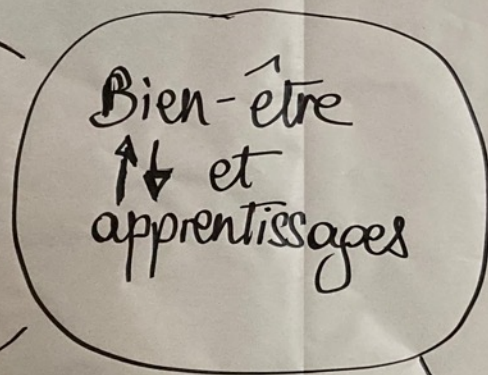 Bien-être
↑↓ et
apprentissages